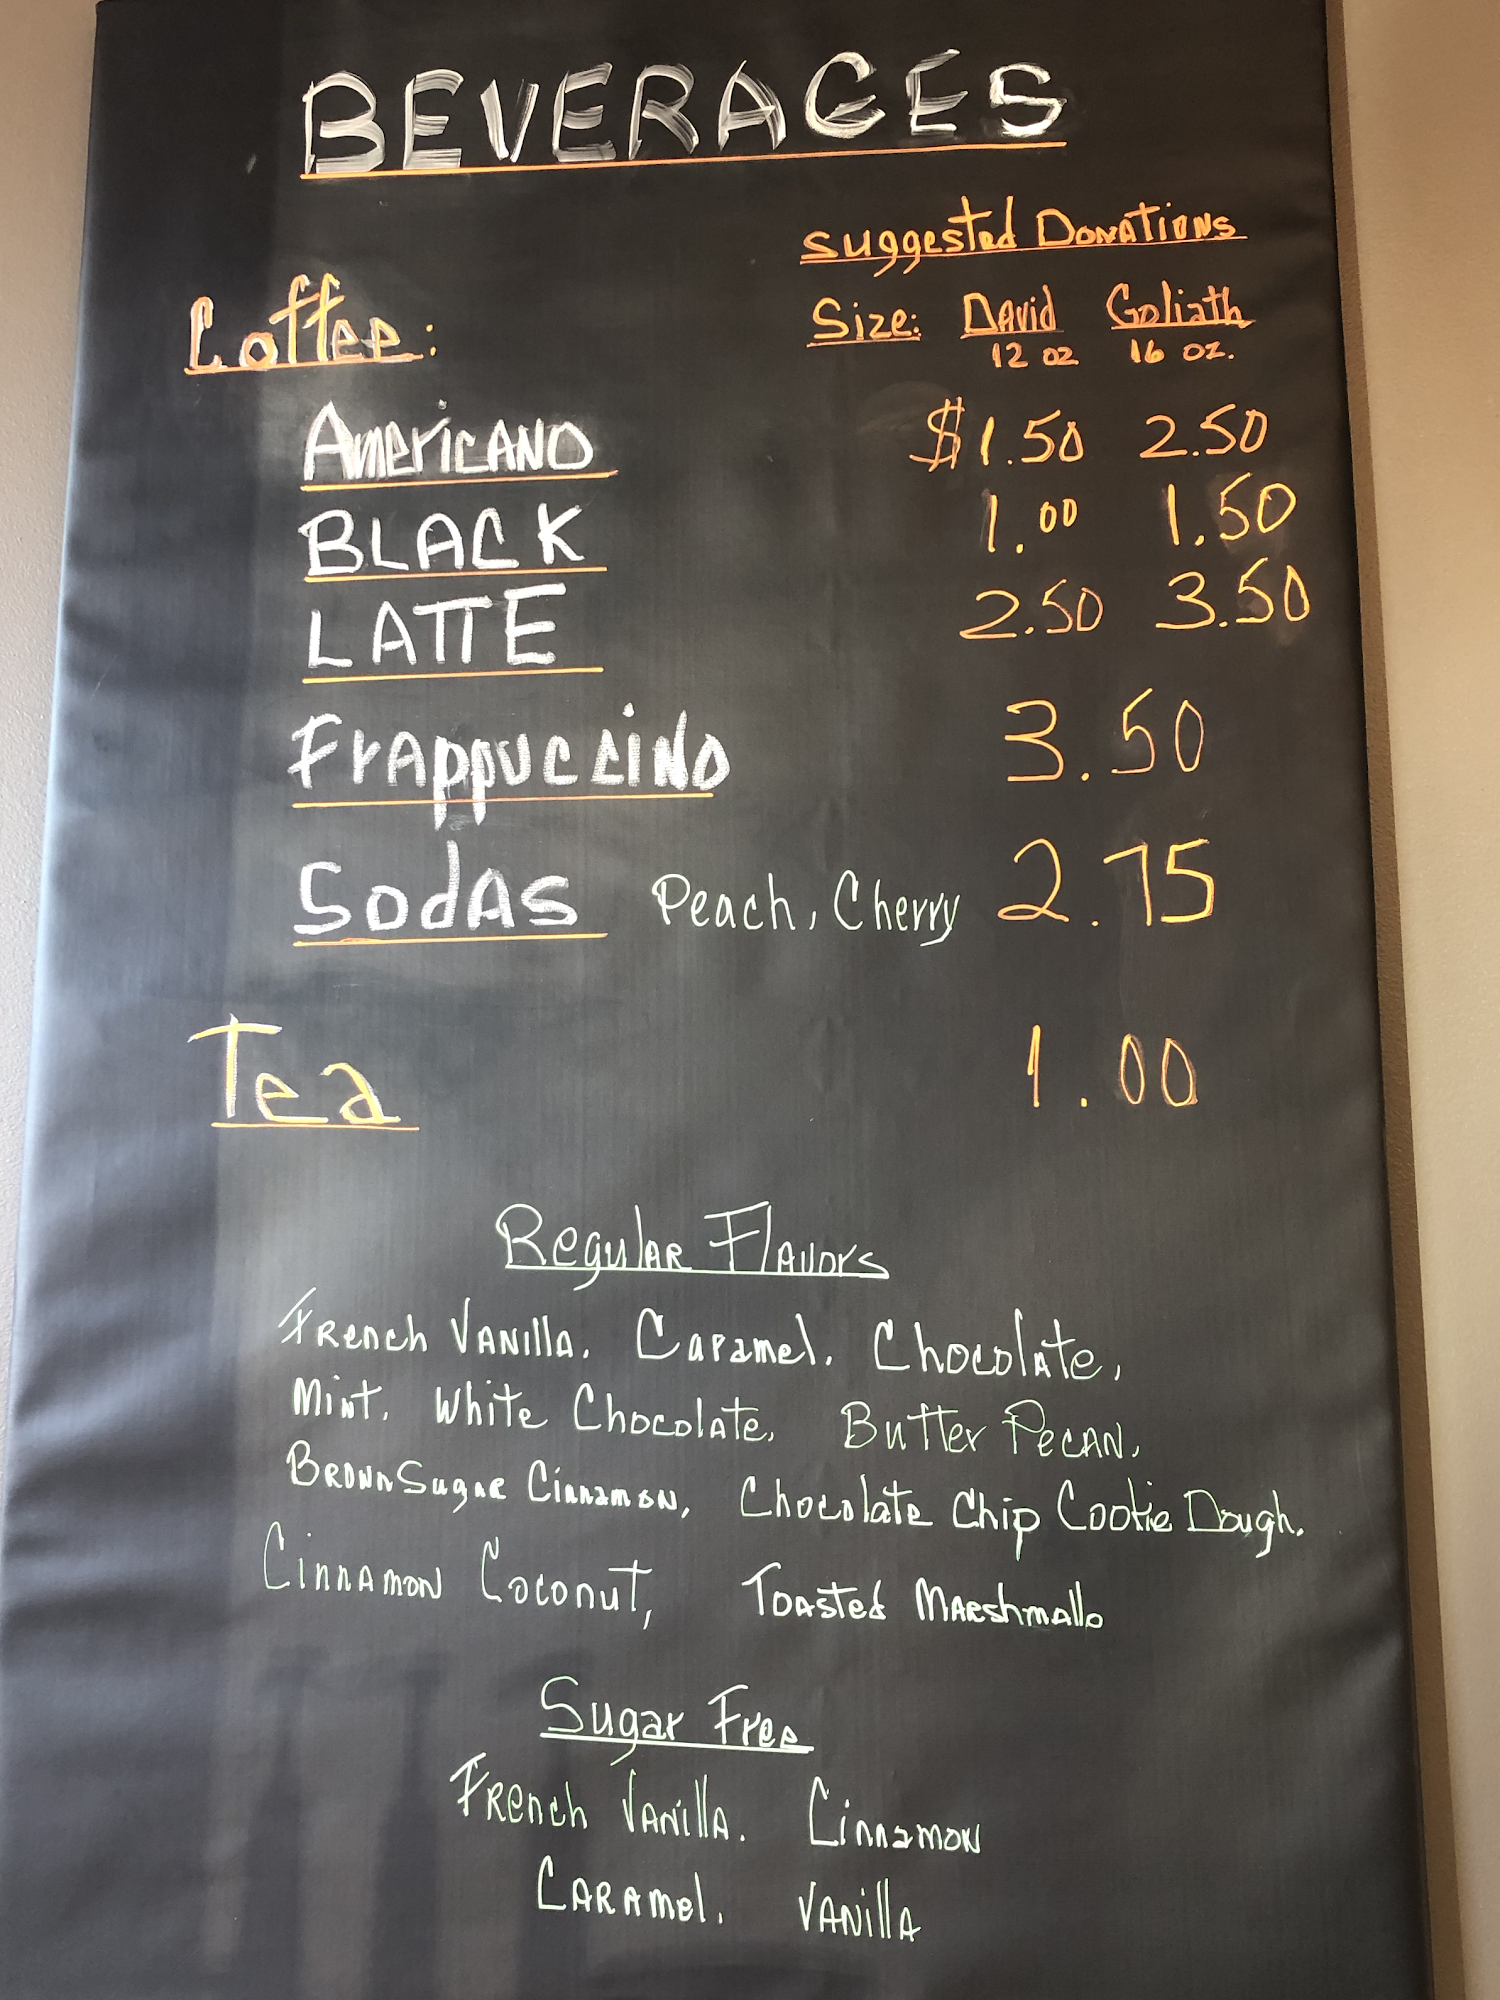 BEVERAGES
Suggested Donations
Coffee:
Size: David Goliath
12 oz 16 oz.
Americano $1.50 2.50
BLACK 1.00 1.50
LATTE 2.50 3.50
Frappuccino 3.50
Sodas Peach, Cherry 2.75
Tea 1.00
Regular Flavors
French Vanilla, Caramel, Chocolate,
Mint, White Chocolate, Butter Pecan,
Brown Sugar Cinnamon, Chocolate Chip Cookie Dough,
Cinnamon Coconut, Toasted Marshmallo
Sugar Free
French Vanilla, Cinnamon
Caramel, Vanilla